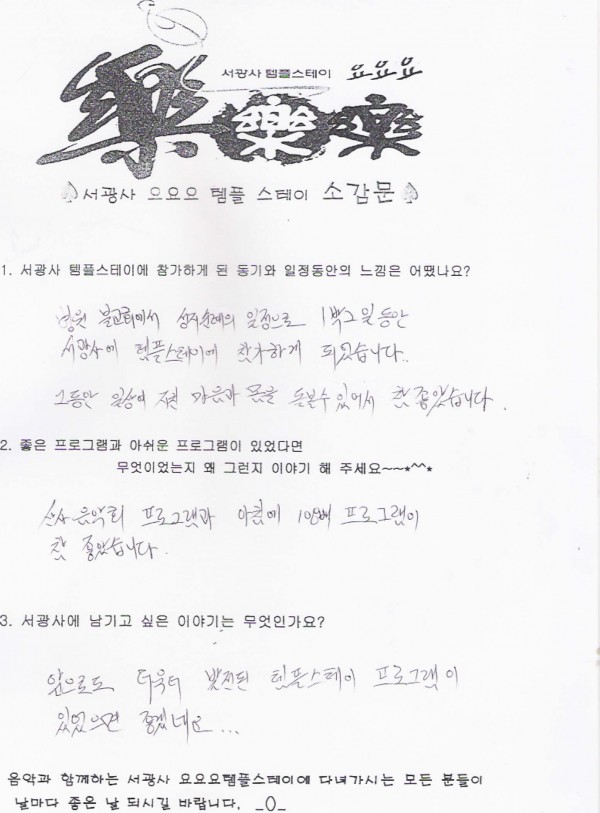 서광사 템플스테이 요요요
樂 樂 樂
서광사 요요요 템플 스테이 소감문
1. 서광사 템플스테이에 참가하게 된 동기와 일정동안의 느낌은 어땠나요?
병원 불교회에서 성지순례의 일정으로 1박2일동안
서광사에 템플스테이에 참가하게 되었습니다..
그동안 일상에 지친 마음과 몸을 돌볼수 있어서 참 좋았습니다.
2. 좋은 프로그램과 아쉬운 프로그램이 있었다면
무엇이었는지 왜 그런지 이야기 해 주세요~~*^^*
산사 음악회 프로그램과 아침에 108배 프로그램이
참 좋았습니다.
3. 서광사에 남기고 싶은 이야기는 무엇인가요?
앞으로도 더욱더 발전된 템플스테이 프로그램이
있었으면 좋겠네요...
음악과 함께하는 서광사 요요요템플스테이에 다녀가시는 모든 분들이
날마다 좋은 날 되시길 바랍니다. _()_